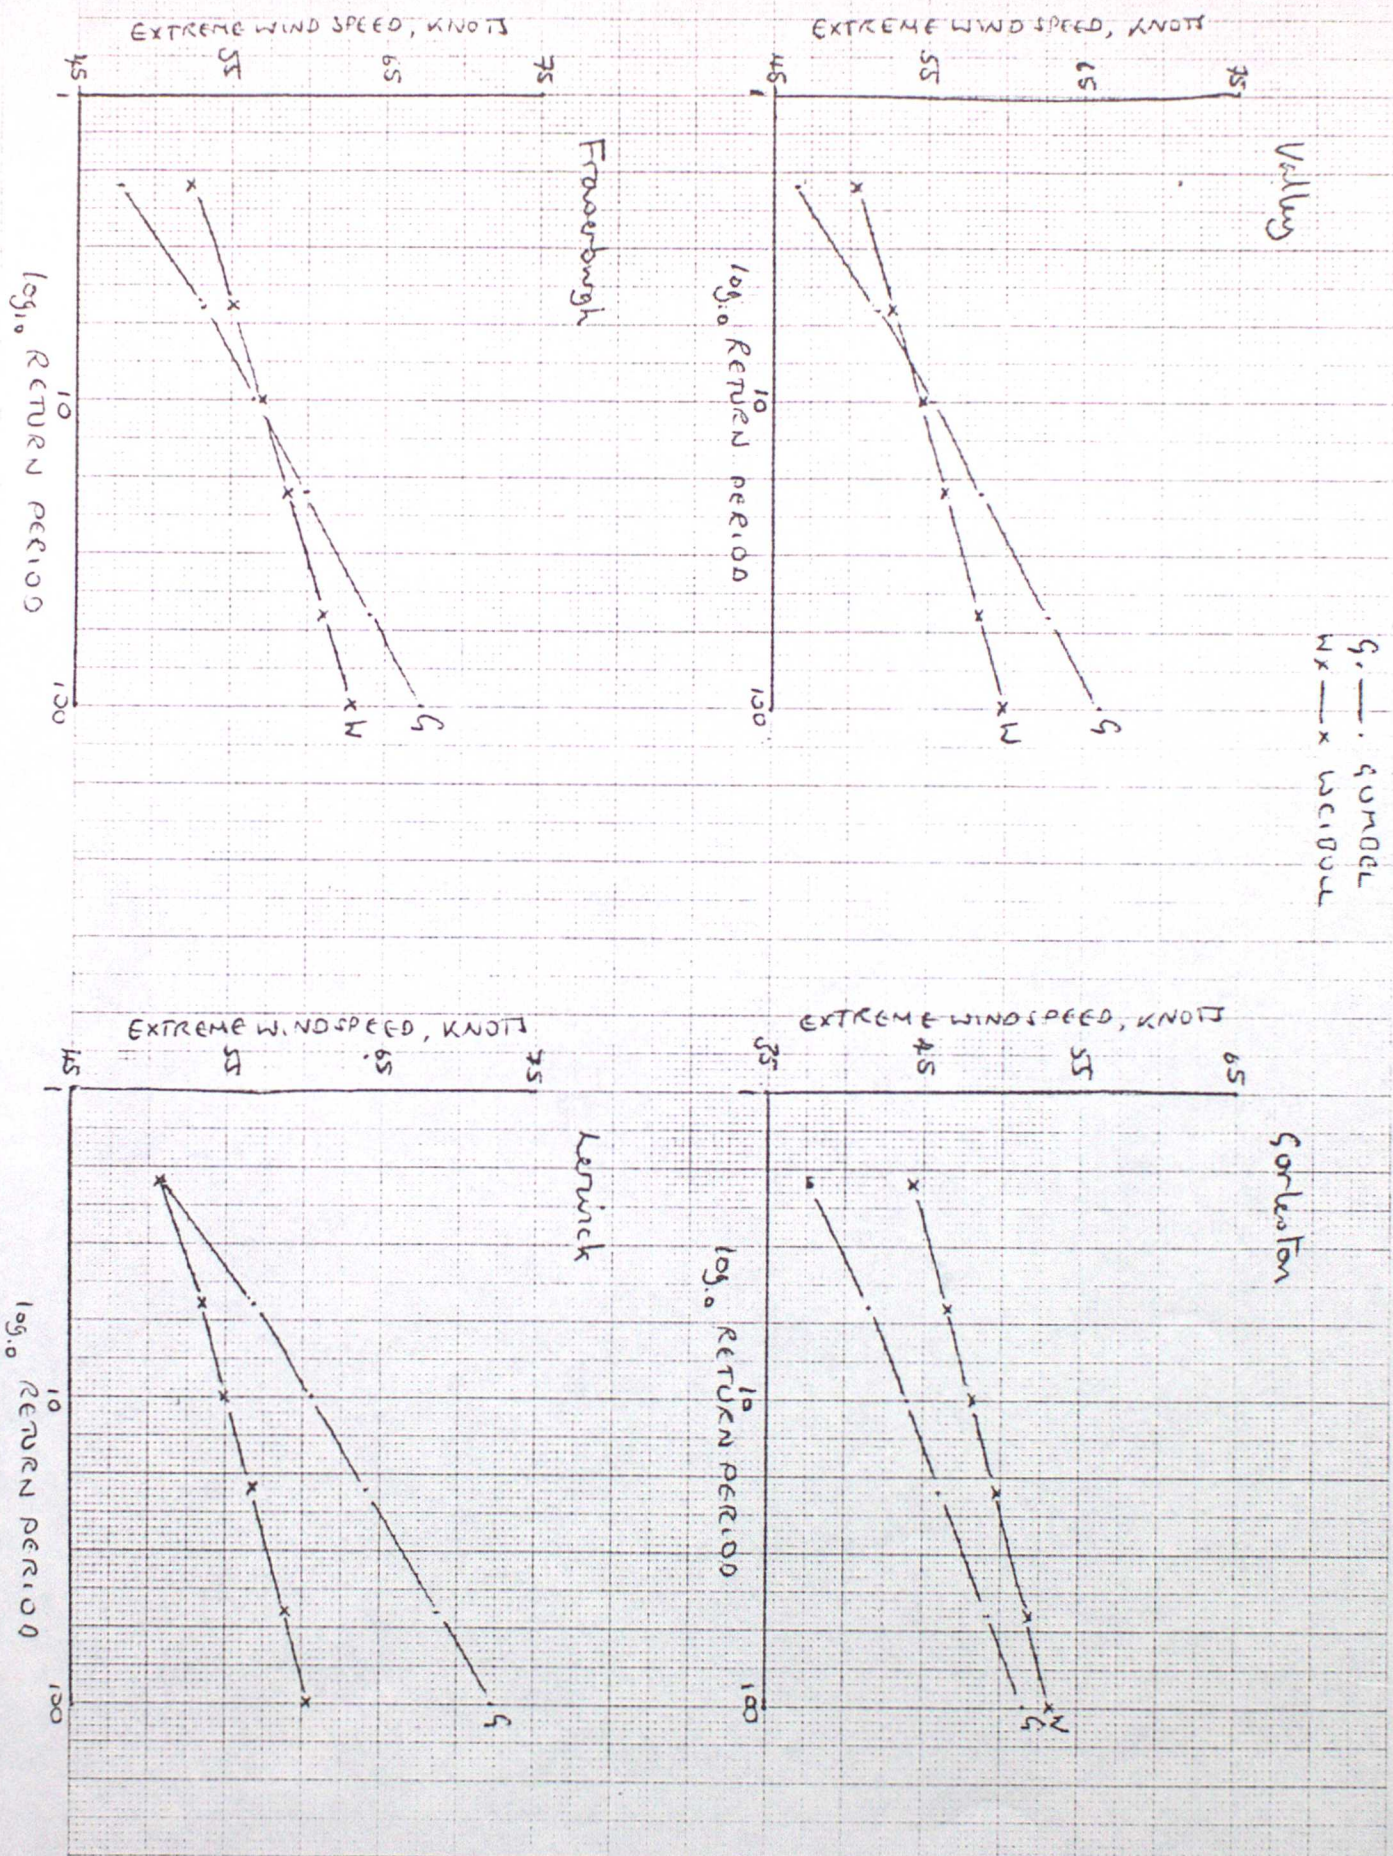 G. —— . GUMBEL
W x —— x WEIBULL
Valley
EXTREME WIND SPEED, KNOTS
75
65
55
45
1
10
100
G
W
log₁₀ RETURN PERIOD
Gorleston
EXTREME WINDSPEED, KNOTS
65
55
45
35
1
10
100
W
G
log₁₀ RETURN PERIOD
Fraserburgh
EXTREME WIND SPEED, KNOTS
75
65
55
45
1
10
100
G
W
log₁₀ RETURN PERIOD
Lerwick
EXTREME WINDSPEED, KNOTS
75
65
55
45
1
10
100
G
log₁₀ RETURN PERIOD